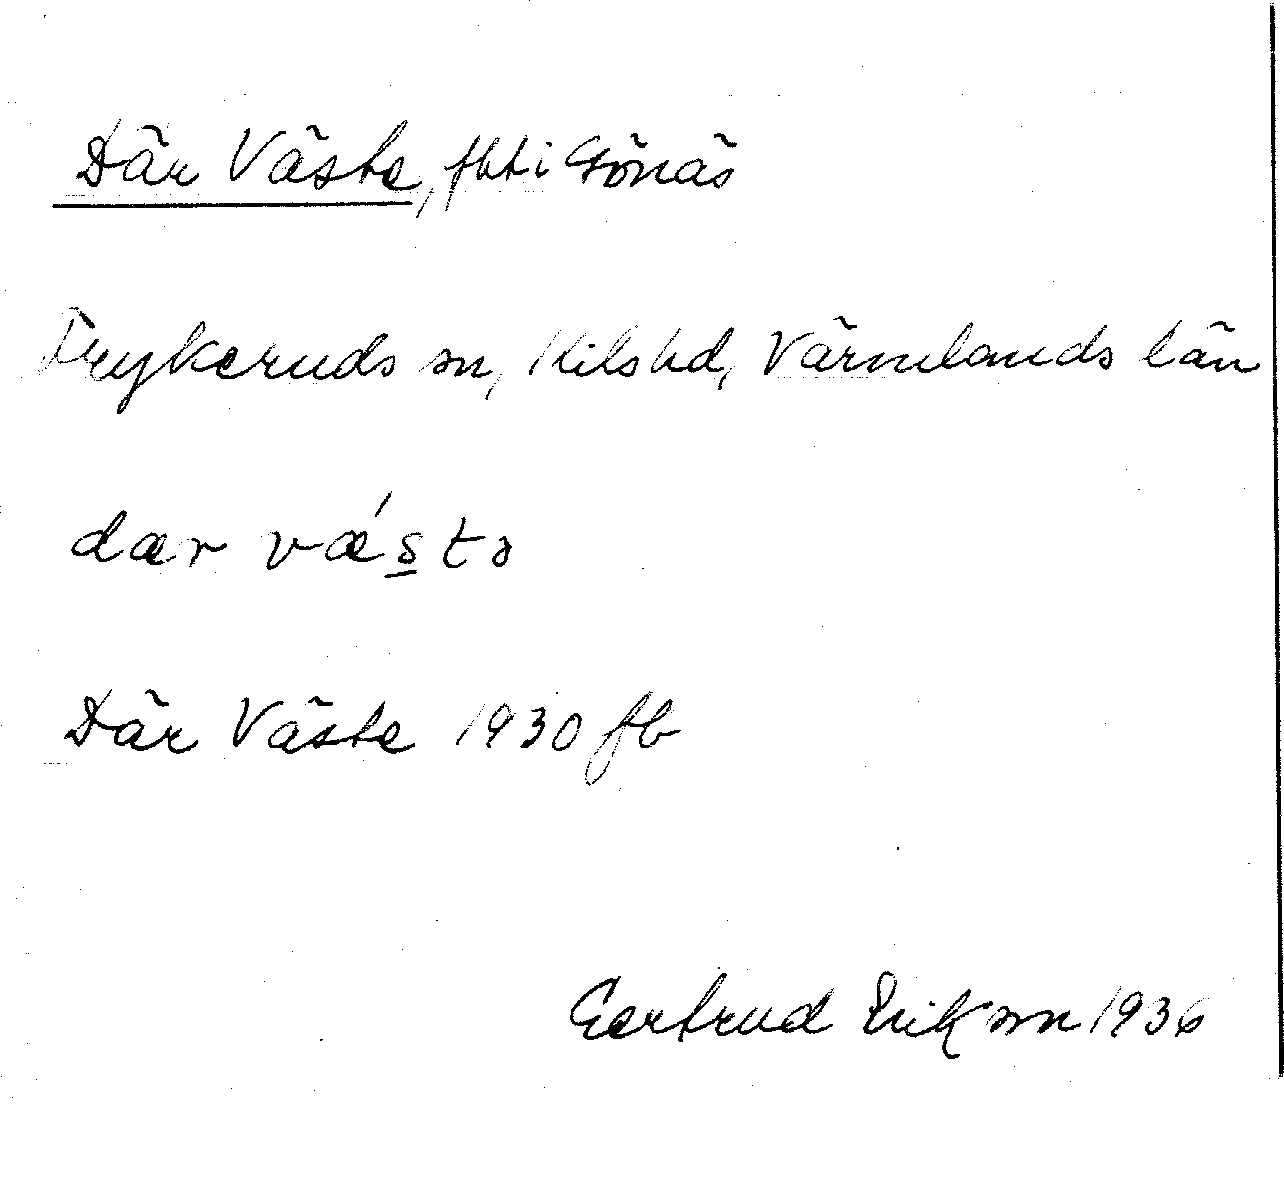 Där Väste, fht i Gönäs
Frykeruds sn, Kils hd, Värmlands län
dær væ´s̲tə
Där Väste 1930 fb
Gertrud Erikson 1936